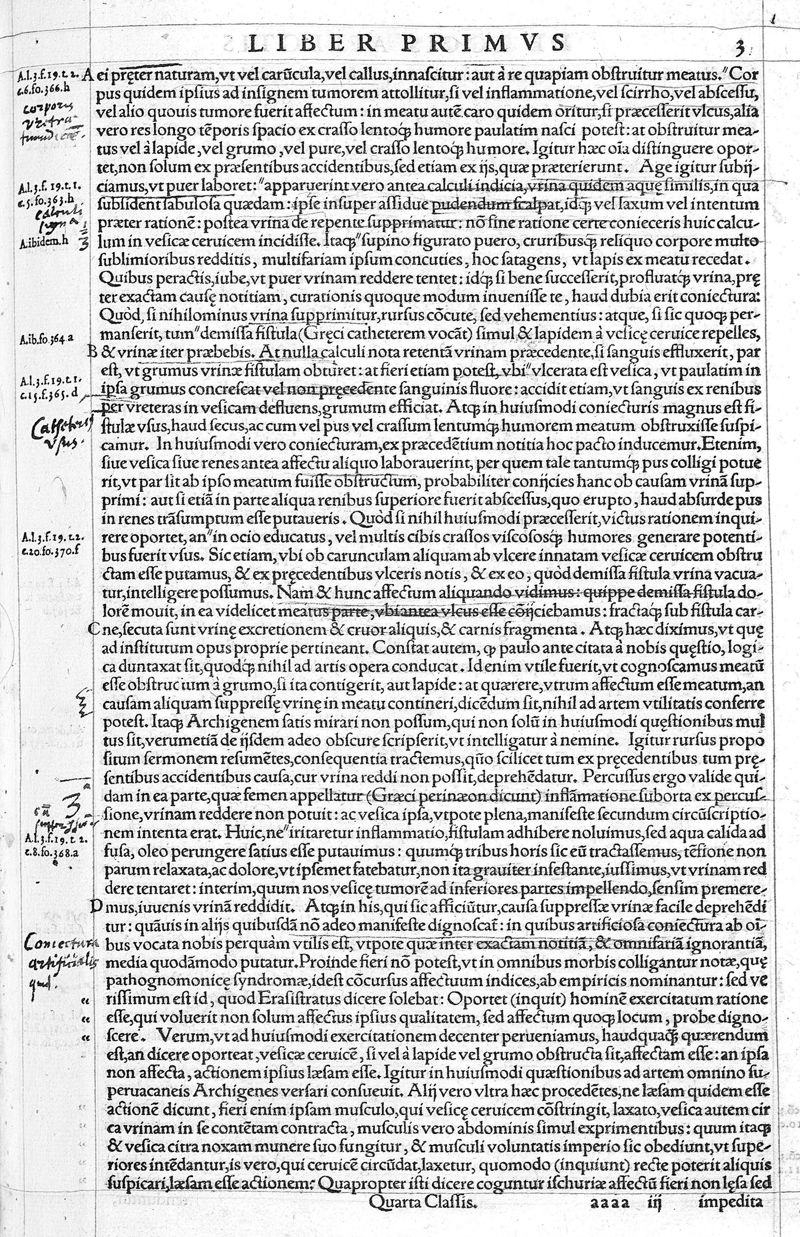 LIBER PRIMVS 3
A.l.3.f.19.t.2. A ei pręter naturam, vt vel carũcula, vel callus, innascitur: aut à re quapiam obstruitur meatus." Cor
c.6.fo.366.h pus quidem ipsius ad insignem tumorem attollitur, si vel inflammatione, vel scirrho, vel abscessu,
corporis vel alio quouis tumore fuerit affectum: in meatu autẽ caro quidem oritur, si præcesserit vlcus, alia
vero res longo tẽporis spacio ex crasso lentoq; humore paulatim nasci potest: at obstruitur mea-
tus vel à lapide, vel grumo, vel pure, vel crasso lentoq; humore. Igitur hæc oĩa distinguere opor-
tet, non solum ex præsentibus accidentibus, sed etiam ex ijs, quæ præterierunt. Age igitur subij-
A.l.3.f.19.t.1. ciamus, vt puer laboret:" apparuerint vero antea calculi indicia, vrina quidem aquę similis, in qua
c.5.fo.363.h subsident sabulosa quædam: ipse insuper assidue pudendum scalpat, idq; vel saxum vel intentum
calculi signa præter rationẽ: postea vrina de repente supprimatur: nõ sine ratione certe conieceris huic calcu-
A.ibidem.h lum in vesicæ ceruicem incidisse. Itaq;" supino figurato puero, cruribusq; reliquo corpore multo
sublimioribus redditis, multifariam ipsum concuties, hoc satagens, vt lapis ex meatu recedat.
Quibus peractis, iube, vt puer vrinam reddere tentet: idq; si bene successerit, profluatq; vrina, prę
ter exactam causę notitiam, curationis quoque modum inuenisse te, haud dubia erit coniectura:
Quòd, si nihilominus vrina supprimitur, rursus cõcute, sed vehementius: atque, si sic quoq; per-
A.ib.fo.364.a manserit, tum" demissa fistula (Gręci catheterem vocãt) simul & lapidem à vesicę ceruice repelles,
B & vrinæ iter præbebis. At nulla calculi nota retentã vrinam præcedente, si sanguis effluxerit, par
A.l.3.f.19.t.1. est, vt grumus vrinæ fistulam obturet: at fieri etiam potest, vbi" vlcerata est vesica, vt paulatim in
c.15.f.365.d ipsa grumus concrescat vel non pręcedente sanguinis fluore: accidit etiam, vt sanguis ex renibus
per vreteras in vesicam defluens, grumum efficiat. Atq; in huiusmodi coniecturis magnus est fi-
Catheteris vsus. stulæ vsus, haud secus, ac cum vel pus vel crassum lentumq; humorem meatum obstruxisse suspi-
camur. In huiusmodi vero coniecturam, ex præcedẽtium notitia hoc pacto inducemur. Etenim,
siue vesica siue renes antea affectu aliquo laborauerint, per quem tale tantumq; pus colligi potue
rit, vt par sit ab ipso meatum fuisse obstructum, probabiliter conijcies hanc ob causam vrinã sup-
primi: aut si etiã in parte aliqua renibus superiore fuerit abscessus, quo erupto, haud absurde pus
in renes trãsumptum esse putaueris. Quòd si nihil huiusmodi præcesserit, victus rationem inqui-
A.l.3.f.19.t.2. rere oportet, an" in ocio educatus, vel multis cibis crassos viscososq; humores generare potenti-
c.20.fo.370.f bus fuerit vsus. Sic etiam, vbi ob carunculam aliquam ab vlcere innatam vesicæ ceruicem obstru
ctam esse putamus, & ex pręcedentibus vlceris notis, & ex eo, quòd demissa fistula vrina vacua-
tur, intelligere possumus. Nam & hunc affectum aliquando vidimus: quippe demissa fistula do-
lorẽ mouit, in ea videlicet meatus parte, vbi antea vlcus esse cõijciebamus: fractaq; sub fistula car-
C ne, secuta sunt vrinę excretionem & cruor aliquis, & carnis fragmenta. Atq; hæc diximus, vt quę
ad institutum opus proprie pertineant. Constat autem, q; paulo ante citata à nobis quęstio, logi-
ca duntaxat sit, quodq; nihil ad artis opera conducat. Id enim vtile fuerit, vt cognoscamus meatũ
esse obstructum à grumo, si ita contigerit, aut lapide: at quærere, vtrum affectum esse meatum, an
causam aliquam suppressę vrinę in meatu contineri, dicẽdum sit, nihil ad artem vtilitatis conferre
potest. Itaq; Archigenem satis mirari non possum, qui non solũ in huiusmodi quęstionibus mul
tus sit, verumetiã de ijsdem adeo obscure scripserit, vt intelligatur à nemine. Igitur rursus propo
situm sermonem resumẽtes, consequentia tractemus, quõ scilicet tum ex pręcedentibus tum prę-
sentibus accidentibus causa, cur vrina reddi non possit, deprehẽdatur. Percussus ergo valide qui-
dam in ea parte, quæ femen appellatur (Græci perinæon dicunt) inflãmatione suborta ex percus-
sione, vrinam reddere non potuit: ac vesica ipsa, vtpote plena, manifeste secundum circũscriptio-
A.l.3.f.19.t.2. nem intenta erat. Huic, ne" irritaretur inflammatio, fistulam adhibere noluimus, sed aqua calida ad
c.8.fo.368.a fusa, oleo perungere satius esse putauimus: quumq; tribus horis sic eũ tractassemus, tẽsione non
parum relaxata, ac dolore, vt ipsemet fatebatur, non ita grauiter infestante, iussimus, vt vrinam red
dere tentaret: interim, quum nos vesicę tumorẽ ad inferiores partes impellendo, sensim premere-
D mus, iuuenis vrinã reddidit. Atq; in his, qui sic afficiũtur, causa suppressæ vrinæ facile deprehẽdi
tur: quãuis in alijs quibusdã nõ adeo manifeste dignoscat̃: in quibus artificiosa coniectura ab oĩ-
Coniectura artificialis quid. bus vocata nobis perquàm vtilis est, vtpote quæ inter exactam notitiã, & omnifariã ignorantiã,
media quodãmodo putatur. Proinde fieri nõ potest, vt in omnibus morbis colligantur notæ, quę
pathognomonicę syndromæ, idest cõcursus affectuum indices, ab empiricis nominantur: sed ve
“ rissimum est id, quod Erasistratus dicere solebat: Oportet (inquit) hominẽ exercitatum ratione
“ esse, qui voluerit non solum affectus ipsius qualitatem, sed affectum quoq; locum, probe digno-
“ scere. Verum, vt ad huiusmodi exercitationem decenter perueniamus, haudquaq; quærendum
est, an dicere oporteat, vesicæ ceruicẽ, si vel à lapide vel grumo obstructa sit, affectam esse: an ipsa
non affecta, actionem ipsius læsam esse. Igitur in huiusmodi quæstionibus ad artem omnino su-
peruacaneis Archigenes versari consueuit. Alij vero vltra hæc procedẽtes, ne læsam quidem esse
actionẽ dicunt, fieri enim ipsam musculo, qui vesicę ceruicem cõstringit, laxato, vesica autem cir
ca vrinam in se contẽtam contracta, musculis vero abdominis simul exprimentibus: quum itaq;
& vesica citra noxam munere suo fungitur, & musculi voluntatis imperio sic obediunt, vt supe-
riores intẽdantur, is vero, qui ceruicẽ circũdat, laxetur, quomodo (inquiunt) recte poterit aliquis
suspicari, læsam esse actionem? Quapropter isti dicere coguntur ischuriæ affectũ fieri non lęsa sed
Quarta Classis. aaaa iij impedita